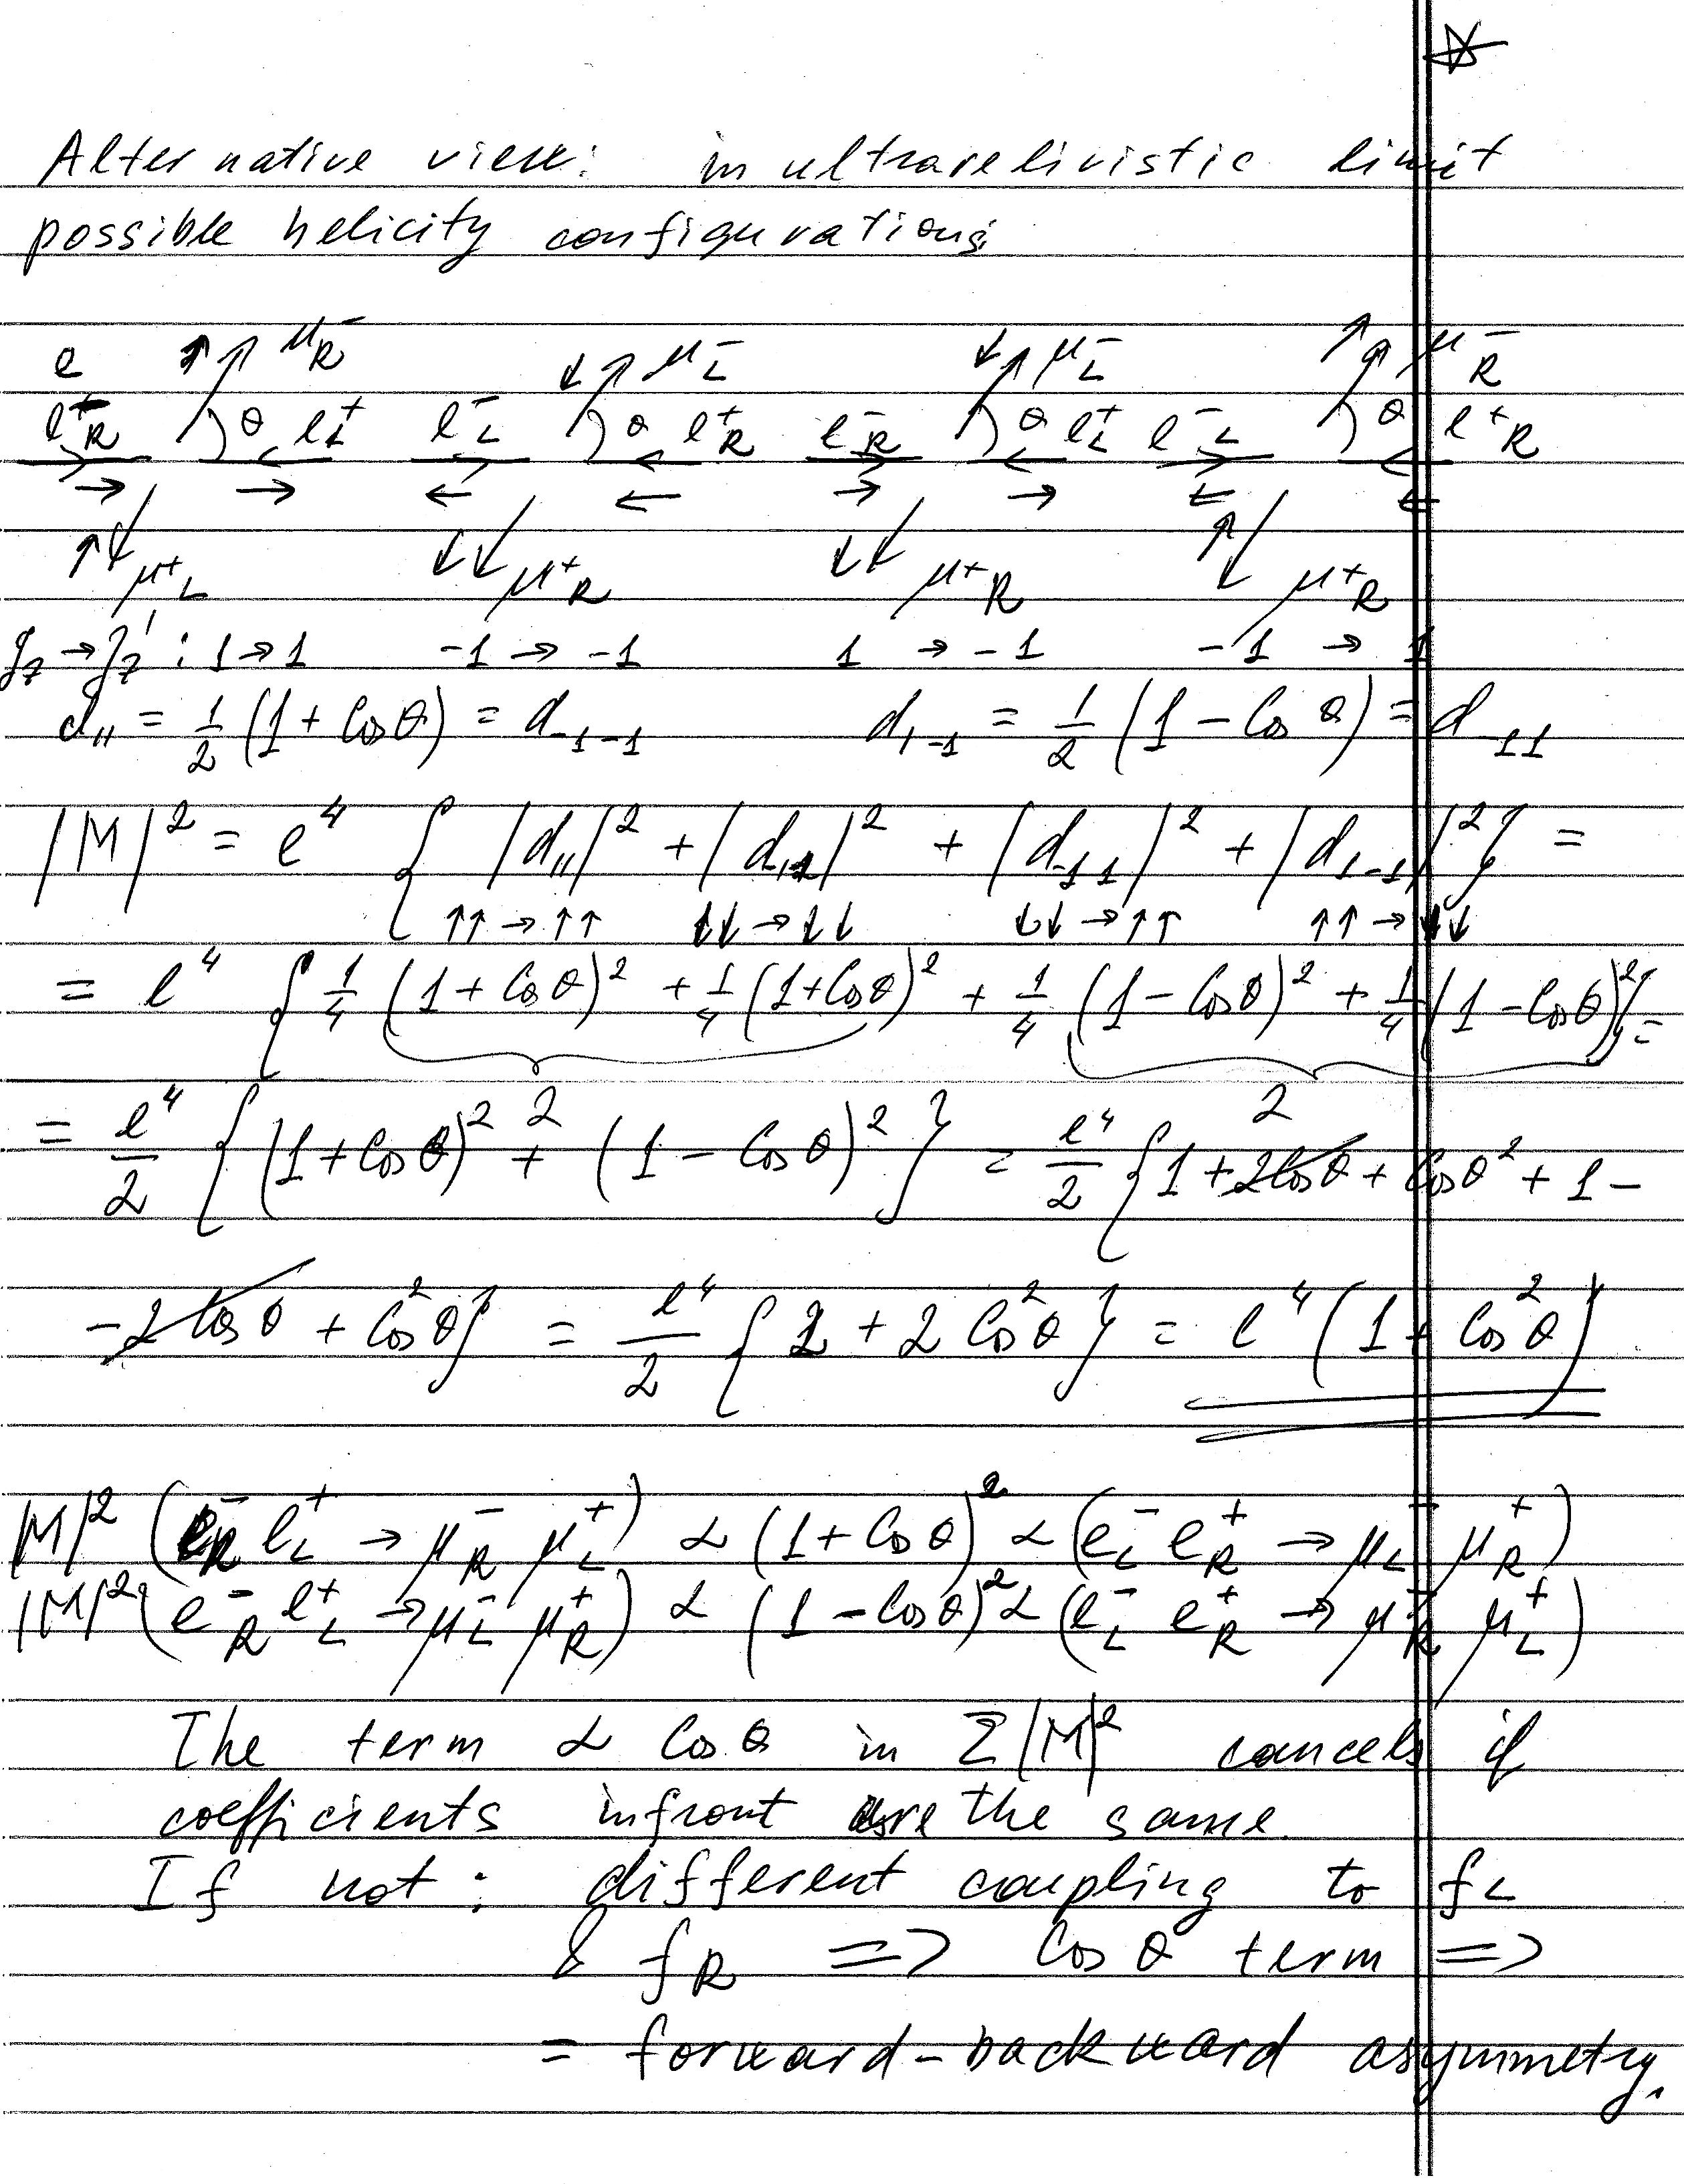 Alternative view: in ultrarelivistic limit
possible helicity configurations:
e μ⁻R μ⁻L μ⁻L μ⁻R
e⁻R θ e⁺L e⁻L θ e⁺R e⁻R θ e⁺L e⁻L θ e⁺R
→ → ← ← → → ← ←
μ⁺L μ⁺R μ⁺R μ⁺R
Jz → Jz' : 1 → 1 -1 → -1 1 → -1 -1 → 1
d₁₁ = 1/2 (1 + Cos θ) = d₋₁₋₁ d₁₋₁ = 1/2 (1 - Cos θ) = d₋₁₁
|M|² = e⁴ { |d₁₁|² + |d₋₁₋₁|² + |d₋₁₁|² + |d₁₋₁|² } =
↑↑ → ↑↑ ↓↓ → ↓↓ ↓↓ → ↑↑ ↑↑ → ↓↓
= e⁴ { 1/4 (1 + Cos θ)² + 1/4 (1 + Cos θ)² + 1/4 (1 - Cos θ)² + 1/4 (1 - Cos θ)² } =
2 2
= e⁴/2 { (1 + Cos θ)² + (1 - Cos θ)² } = e⁴/2 { 1 + 2Cos θ + Cos θ² + 1 -
- 2 Cos θ + Cos² θ } = e⁴/2 { 2 + 2 Cos² θ } = e⁴ (1 + Cos² θ)
|M|² (e⁻R e⁺L → μ⁻R μ⁺L) ∝ (1 + Cos θ)² ∝ (e⁻L e⁺R → μ⁻L μ⁺R)
|M|² (e⁻R e⁺L → μ⁻L μ⁺R) ∝ (1 - Cos θ)² ∝ (e⁻L e⁺R → μ⁻R μ⁺L)
The term ∝ Cos θ in Σ|M|² cancels if
coefficients infront are the same.
If not: different coupling to fL
& fR => Cos θ term =>
= forward-backward asymmetry.